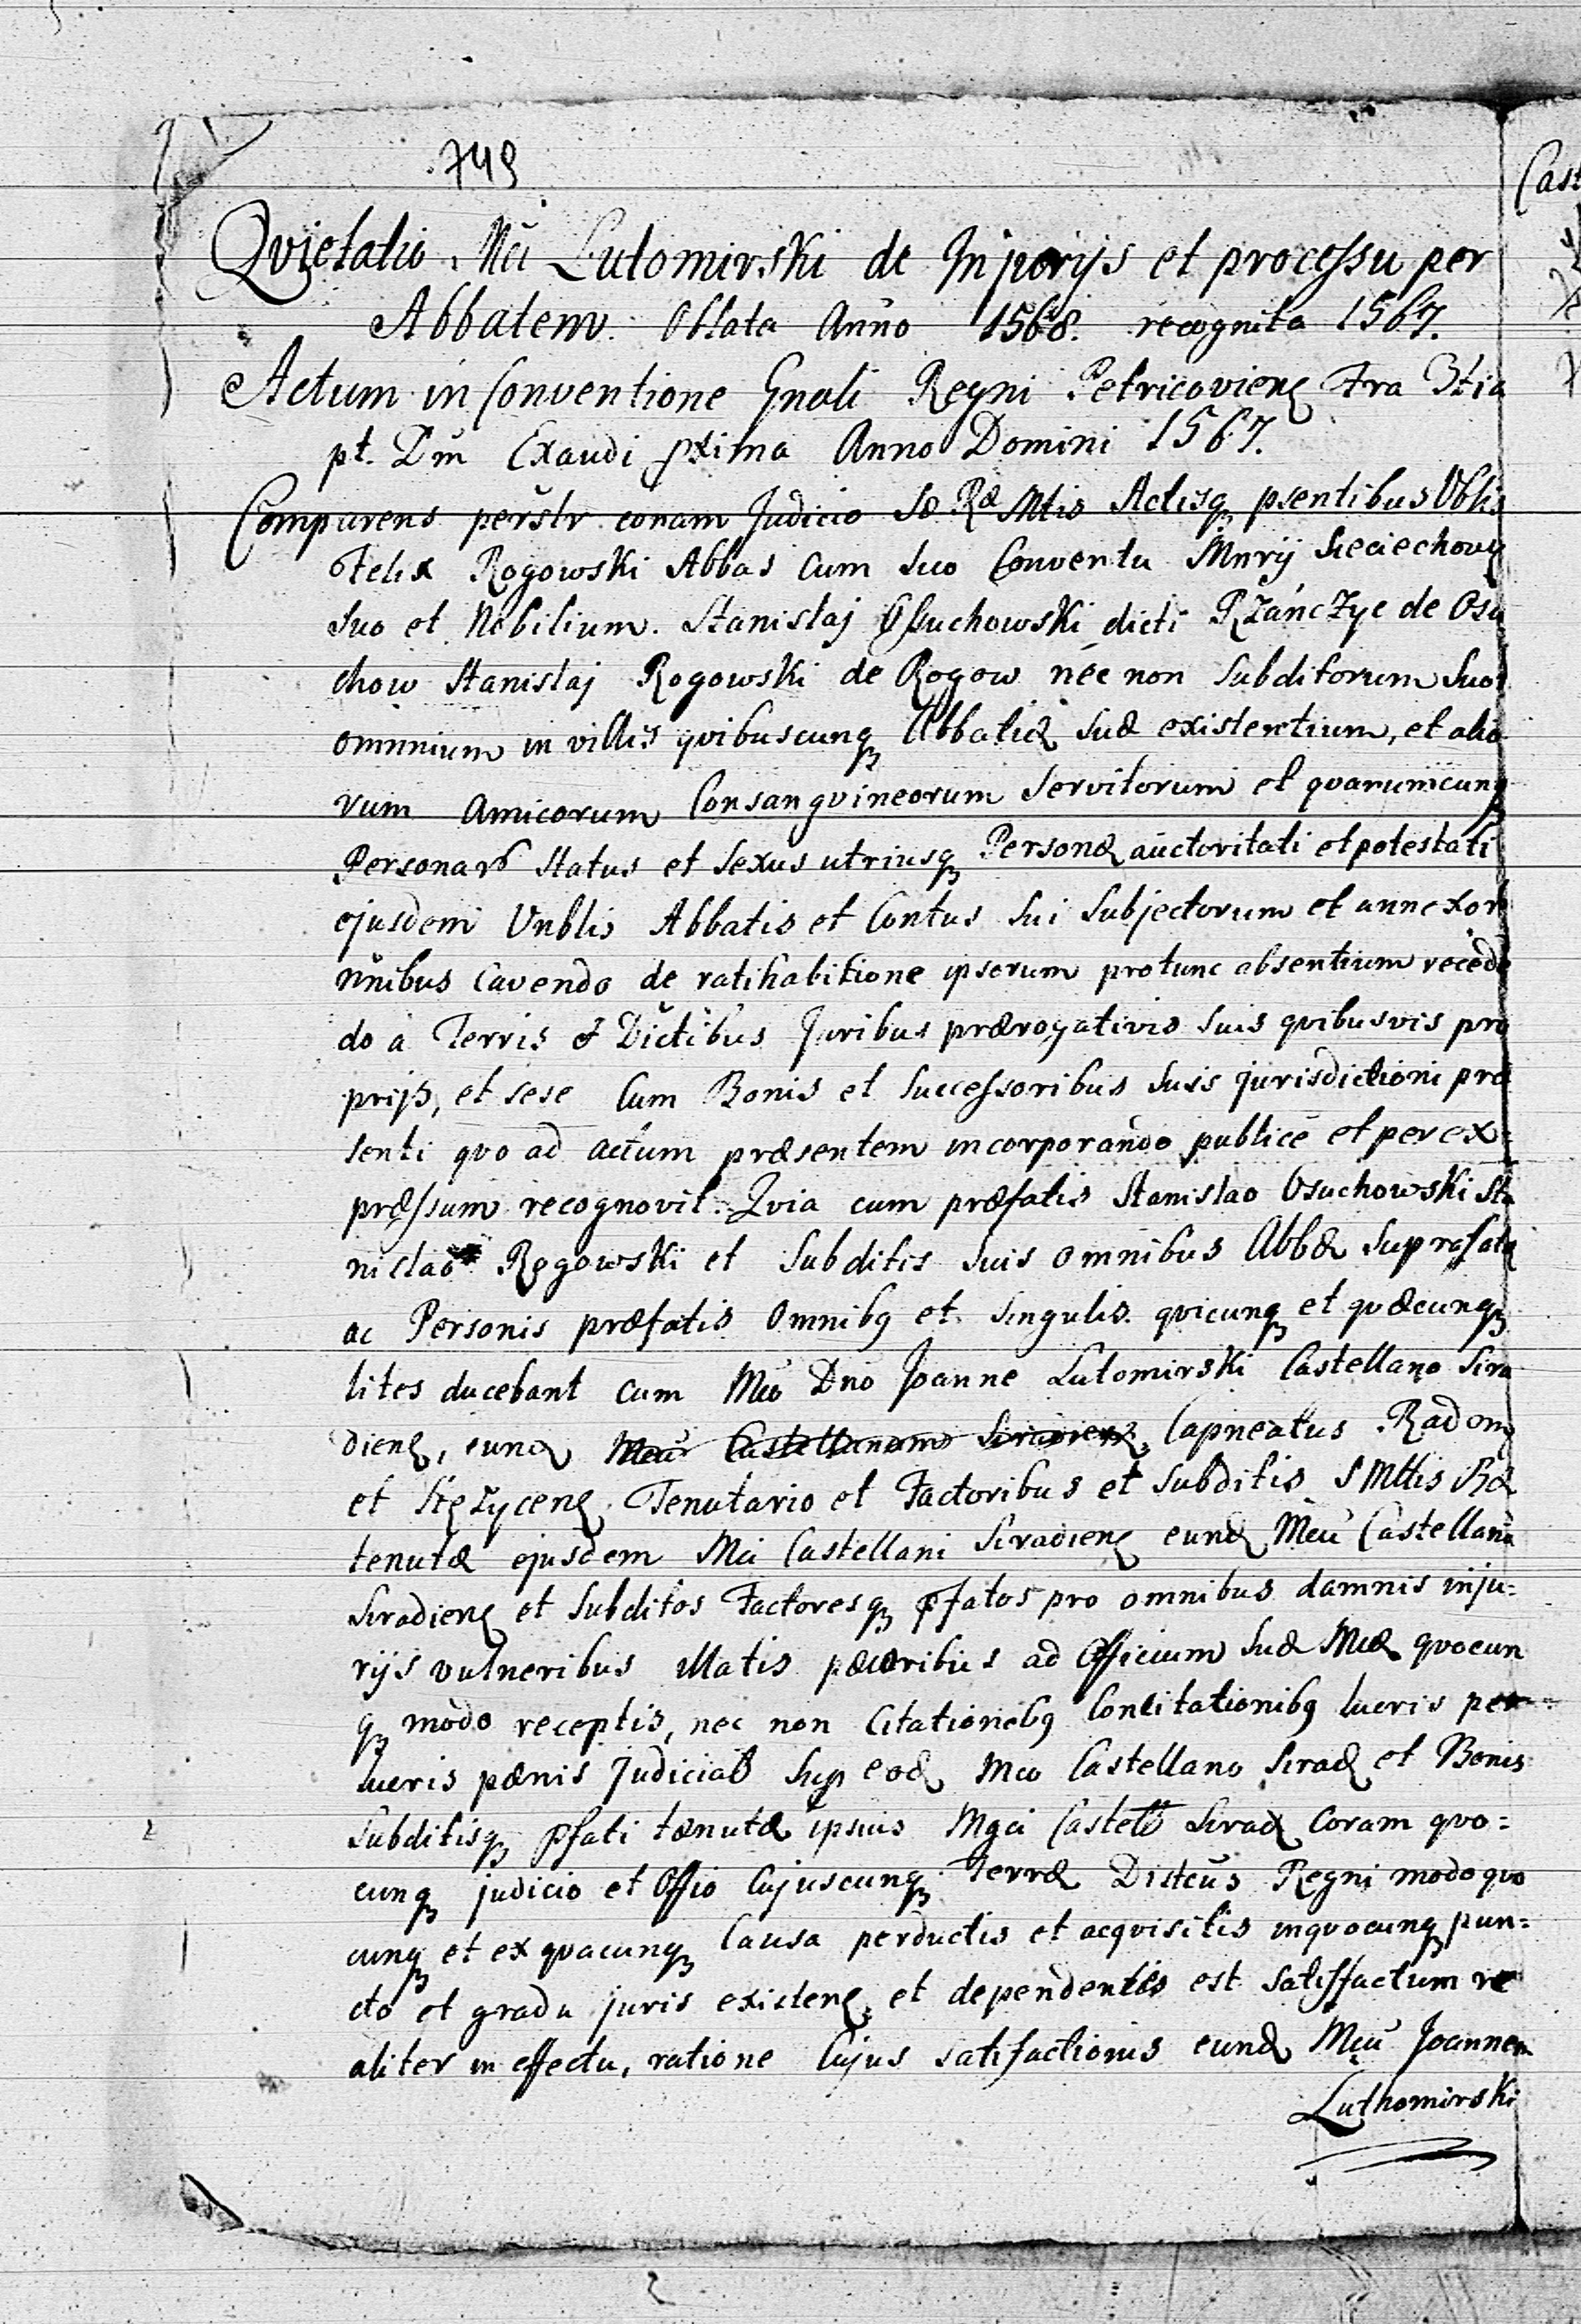 749
Qvietatio Mci Lutomirski de Injuryis et processu per
Abbatem. Oblata Anno 1568. recognita 1567.
Actum in Conventione Gnali Regni Petricoviens Fra 3tia
pt. Dm Exaudi pxima Anno Domini 1567.
Comparens perstr coram Judicio Sæ Ræ Mtis Actisq psentibus Vblis
Felix Rogowski Abbas cum suo Conventu Mnrij Sieciechovi
suo et Nobilium. Stanislaj Osuchowski dicti Rzánczyc de Osu
chow Stanislaj Rogowski de Rogow nec non Subditorum Suor
omnium in villis qvibuscunq Abbatiæ suæ existentium, et alio
rum Amicorum Consangvineorum Servitorum et qvarumcunq
Personarb Status et Sexus utriusq Personæ auctoritati et potestati
ejusdem Vnblis Abbatis et Contus sui Subjectorum et annexorb
nnibus cavendo de ratihabitione ipsorum protunc absentium receden
do a Terris & Dictibus Juribus prærogativis suis qvibusvis pro
prijs, et sese cum Bonis et Successoribus suis jurisdictioni præ
senti qvo ad actum præsentem incorporando publice et per ex=
præssum recognovit. Qvia cum præfatis Stanislao Osuchowski Sta
nislao Rogowski et Subditis suis omnibus Abbæ Suprafatæ
ac Personis præfatis Omnibq et singulis qvicunq et qvæcunq
lites ducebant cum Mco Dno Joanne Lutomirski Castellano Sira
diens, eundq Mcu Castellanum Siradiens Capneatus Radom
et Stęzycens Tenutario et Factoribus et Subditis S Mttis Ræ
tenutæ ejusdem Mci Castellani Siradiens eundq Mcu Castellanu
Siradiens et Subditos Factoresq pfatos pro omnibus damnis inju=
rijs vulneribus illatis pæcoribus ad Officium Suæ Mcæ qvocun
q modo receptis, nec non Citationibq Concitationibq lucris per=
lucris pænis Judicialb Sup eodq Mco Castellano Siradq et Bonis
Subditisq pfati tænutæ ipsius Mgci Castelb Siradq Coram qvo=
cunq judicio et Offio Cujuscunq Terræ Disteus Regni modo qvo
cunq et ex qvacunq Causa perductis et acqvisitis inqvocunq pun=
cto et gradu juris existens et dependentis est Satisfactum re
aliter in effectu, ratione Cujus satisfactionis eundq Mcu Joannem
Luthomirski
Cast